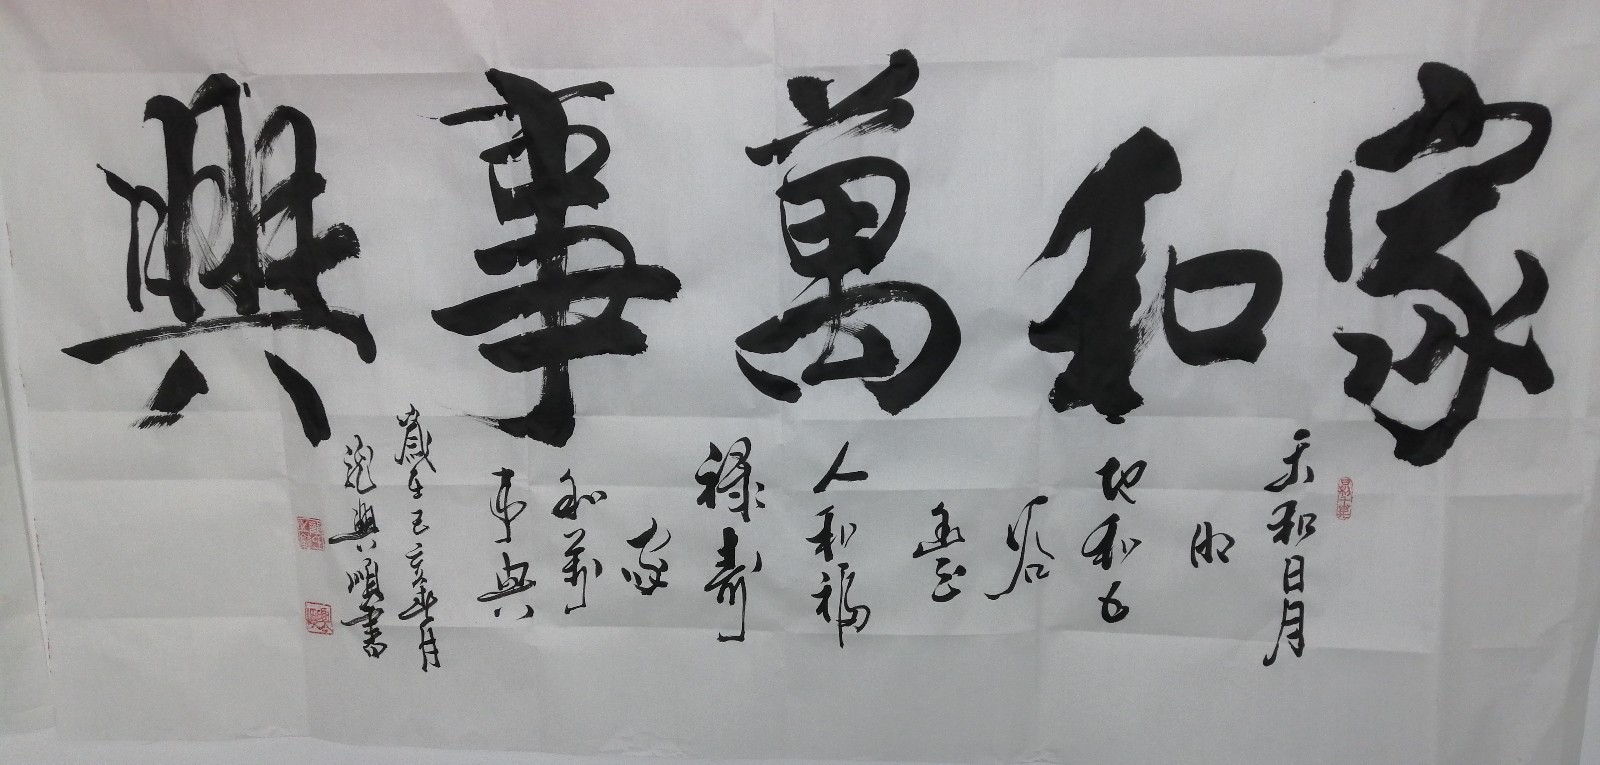 家和萬事興
天和日月
明
地和五
谷
豊
人和福
禄壽
家
和萬
事興
歲在己亥年月
興順書